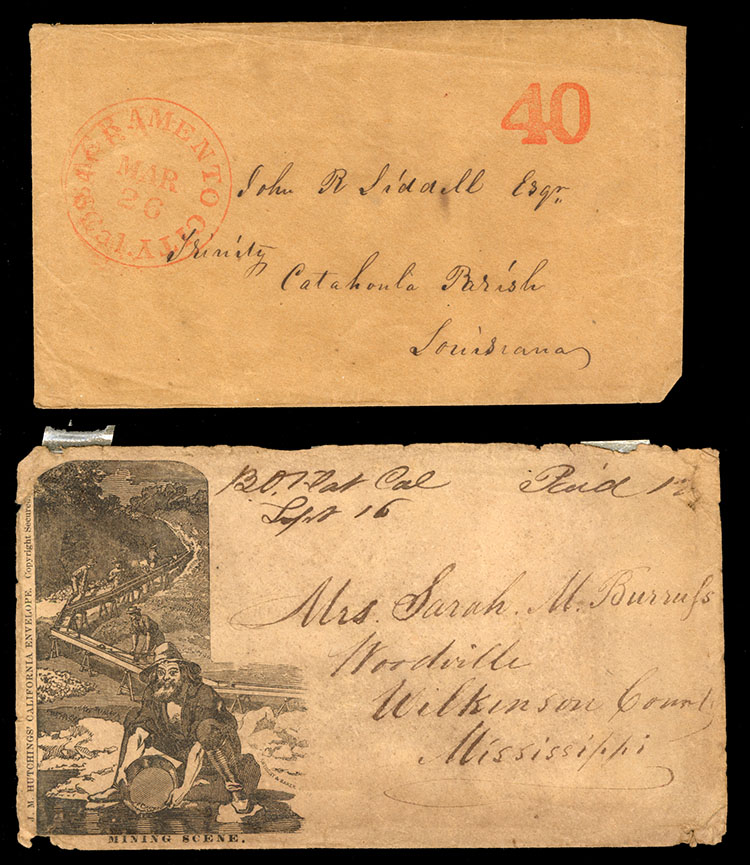 40
SACRAMENTO CITY
MAR
26
John R Liddell Esqr
Trinity
Catahoula Parish
Louisiana
J. M. HUTCHINGS' CALIFORNIA ENVELOPE. Copyright Secured.
MINING SCENE.
Flat Cal
Sept 16
Paid
Mrs. Sarah. M. Burruss
Woodville
Wilkinson County
Mississippi